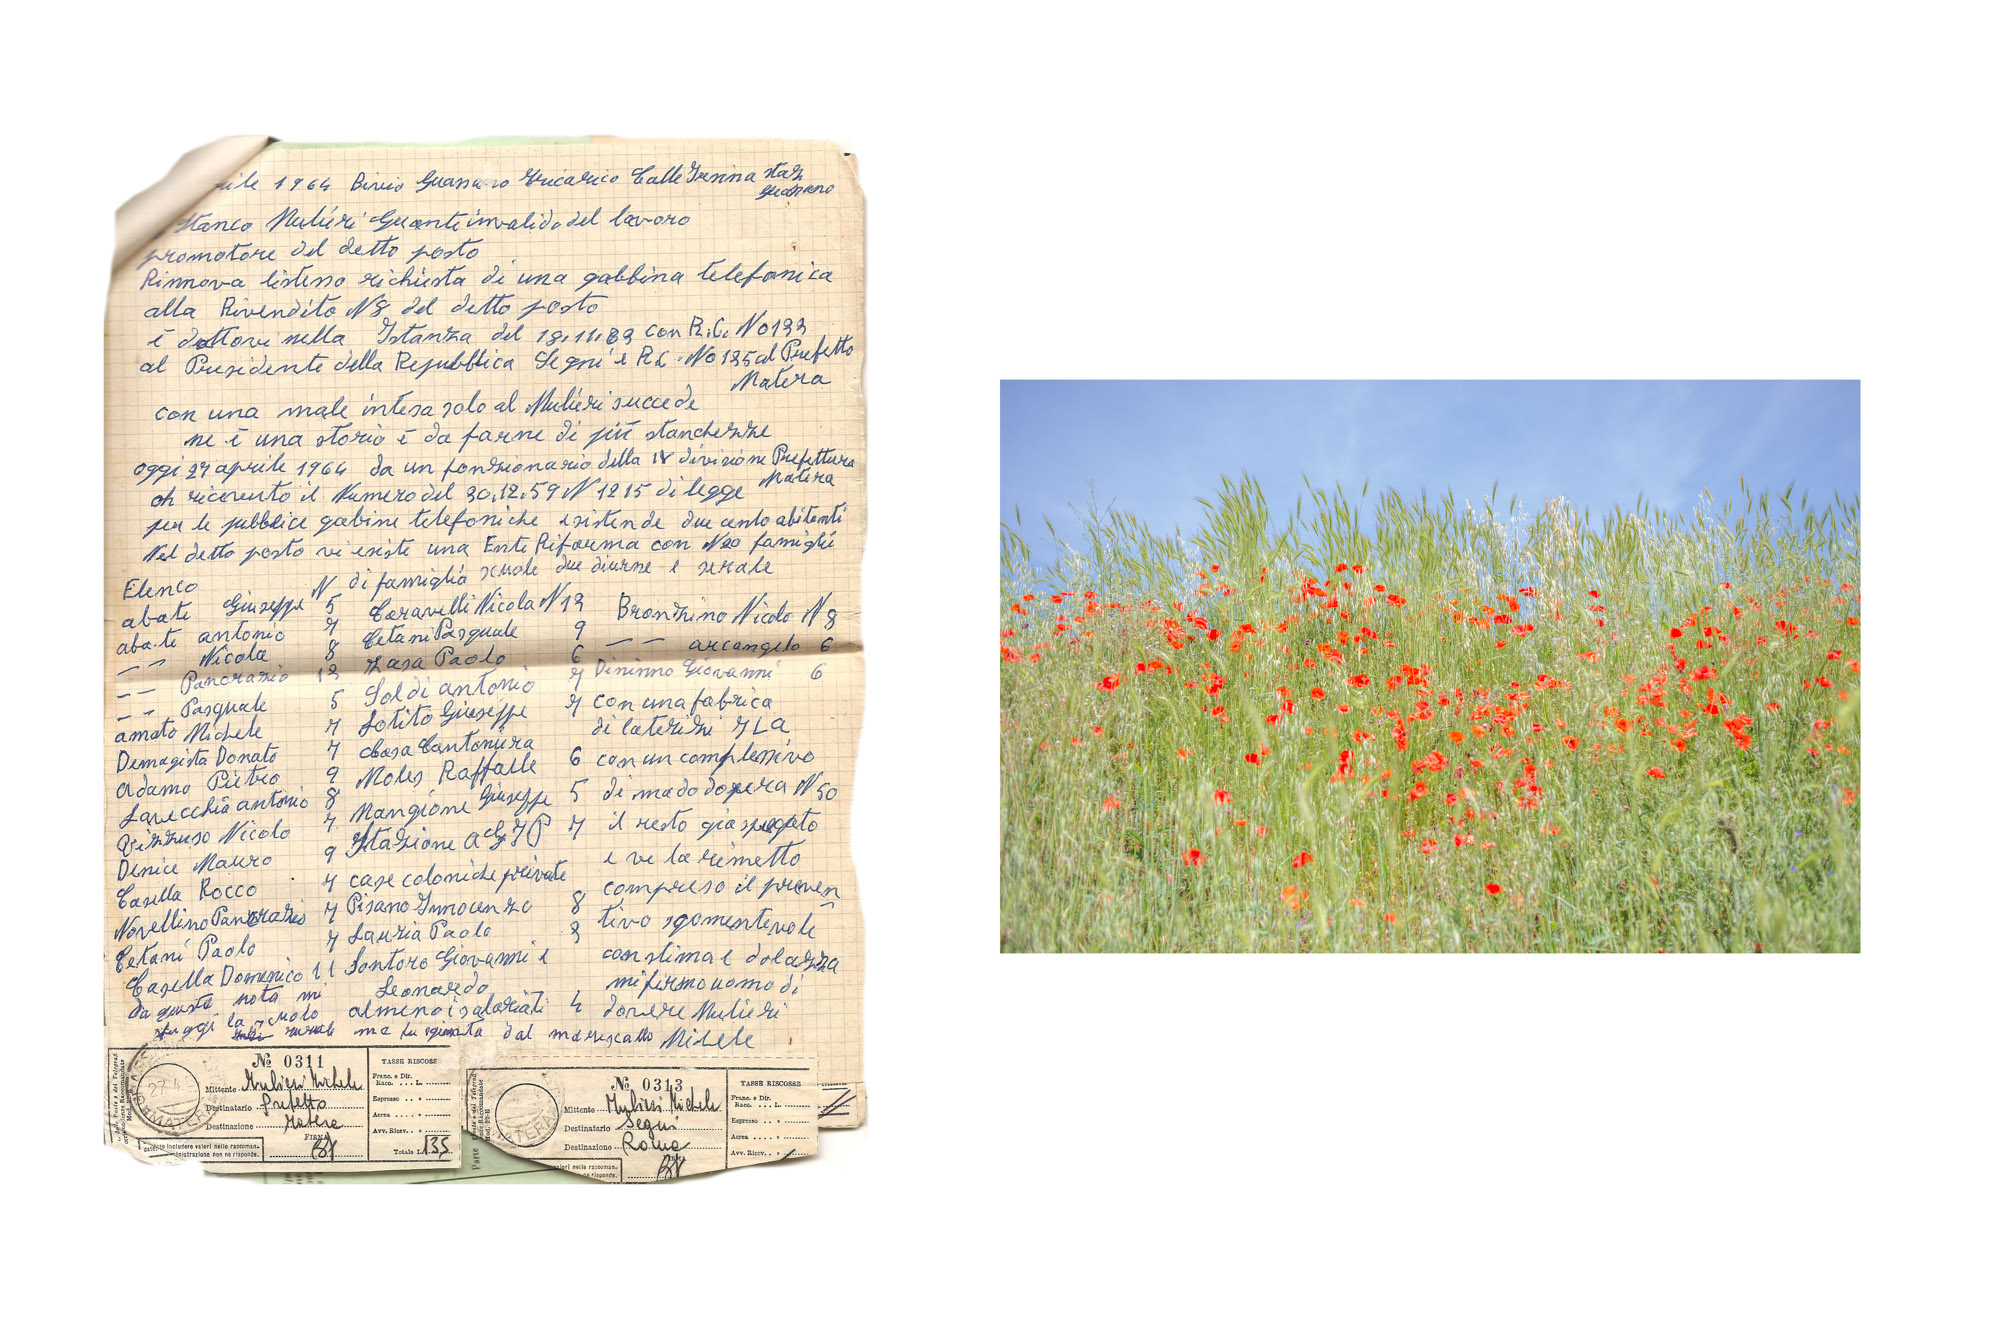 1964 Bivio Grassano Tricarico Calle Irsina staz
grassano
stanco Mulieri Guanti invalido del lavoro
promotore del detto posto
Rinnova listeno richiesta di una gabbina telefonica
alla Rivendito N8 del detto posto
è dettovi nella Istanza del 18.11.63 con R.C. No 133
al Presidente della Repubblica Segni e R.C. No 135 al Prefetto
Matera
con una male intesa solo al Mulieri succede
ne è una storio è da farne di più stanchezze
oggi 27 aprile 1964 da un fonzionario della IV divisione Prefettura
Matera
ch ricevuto il Numero del 30.12.59 N 1215 di legge
per le pubblice gabine telefoniche esistende due cento abitanti
Nel detto posto vi esiste una Ente Riforma con N20 famiglie
Elenco N di famiglia scuole due diurne e serale
abate Giuseppe 5
abate antonio 7
-- Nicola 8
-- Pancrazio 13
-- Pasquale 5
amato Michele 7
Demagista Donato 7
adamo Pietro 9
Lavecchia antonio 8
Vizzuso Nicolo 7
Denice Mauro 9
Casella Rocco 7
Novellino Pancrazio 7
Cetani Paolo 7
Casella Domenico 11
da questa nota mi
fuggi la scuolo
serale ma fu sgionata dal maresciallo
Caravelli Nicola N 13
Cetani Pasquale 9
Zasa Paolo 6
Soldi antonio 7
Lotito Giuseppe 7
Casa Cantoniera
Moles Raffaele 6
Mangione Giuseppe 5
Stazione AGIP 7
case coloniche private
Pisano Innocenzo 8
Lauria Paolo 3
Santoro Giovanni e
Leonardo
almeno i salariati 4
Bronzino Nicolo N 8
-- arcangelo 6
Dininno Giovanni 6
con una fabrica
di laterizi ILA
con un complessivo
di mado dopera N 50
il resto già spiegato
e ve la rimetto
compreso il preven
tivo sgomentevole
con stima e dolcezza
mi firmo uomo di
dovere Mulieri
Michele
№ 0311
Mittente Mulieri Michele
Destinatario Prefetto
Destinazione Matera
FIRMA
TASSE RISCOSSE
Franc. e Dir.
Racc. ... L.
Espresso
Aerea
Avv. Ricev.
Totale L. 135
27.4
MATERA
№ 0313
Mittente Mulieri Michele
Destinatario Segni
Destinazione Roma
TASSE RISCOSSE
Franc. e Dir.
Racc. ... L.
Espresso
Aerea
Avv. Ricev.